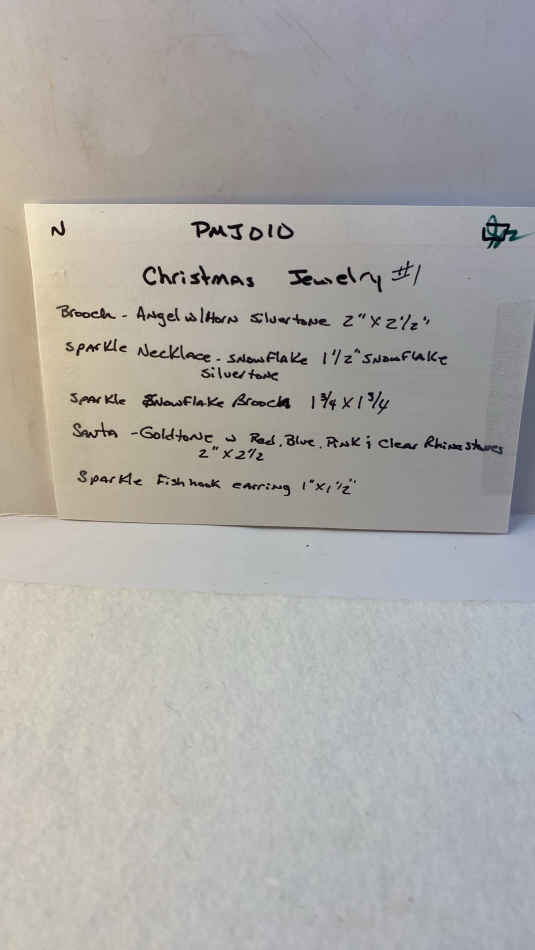 N PMJ010
Christmas Jewelry #1
Brooch - Angel w/Horn Silvertone 2" X 2 1/2"
Sparkle Necklace - Snowflake 1 1/2" Snowflake
Silvertone
Sparkle Snowflake Brooch 1 3/4 X 1 3/4
Santa - Goldtone w Red, Blue, Pink & Clear Rhinestones
2" X 2 1/2
Sparkle Fishhook earring 1" X 1 1/2"